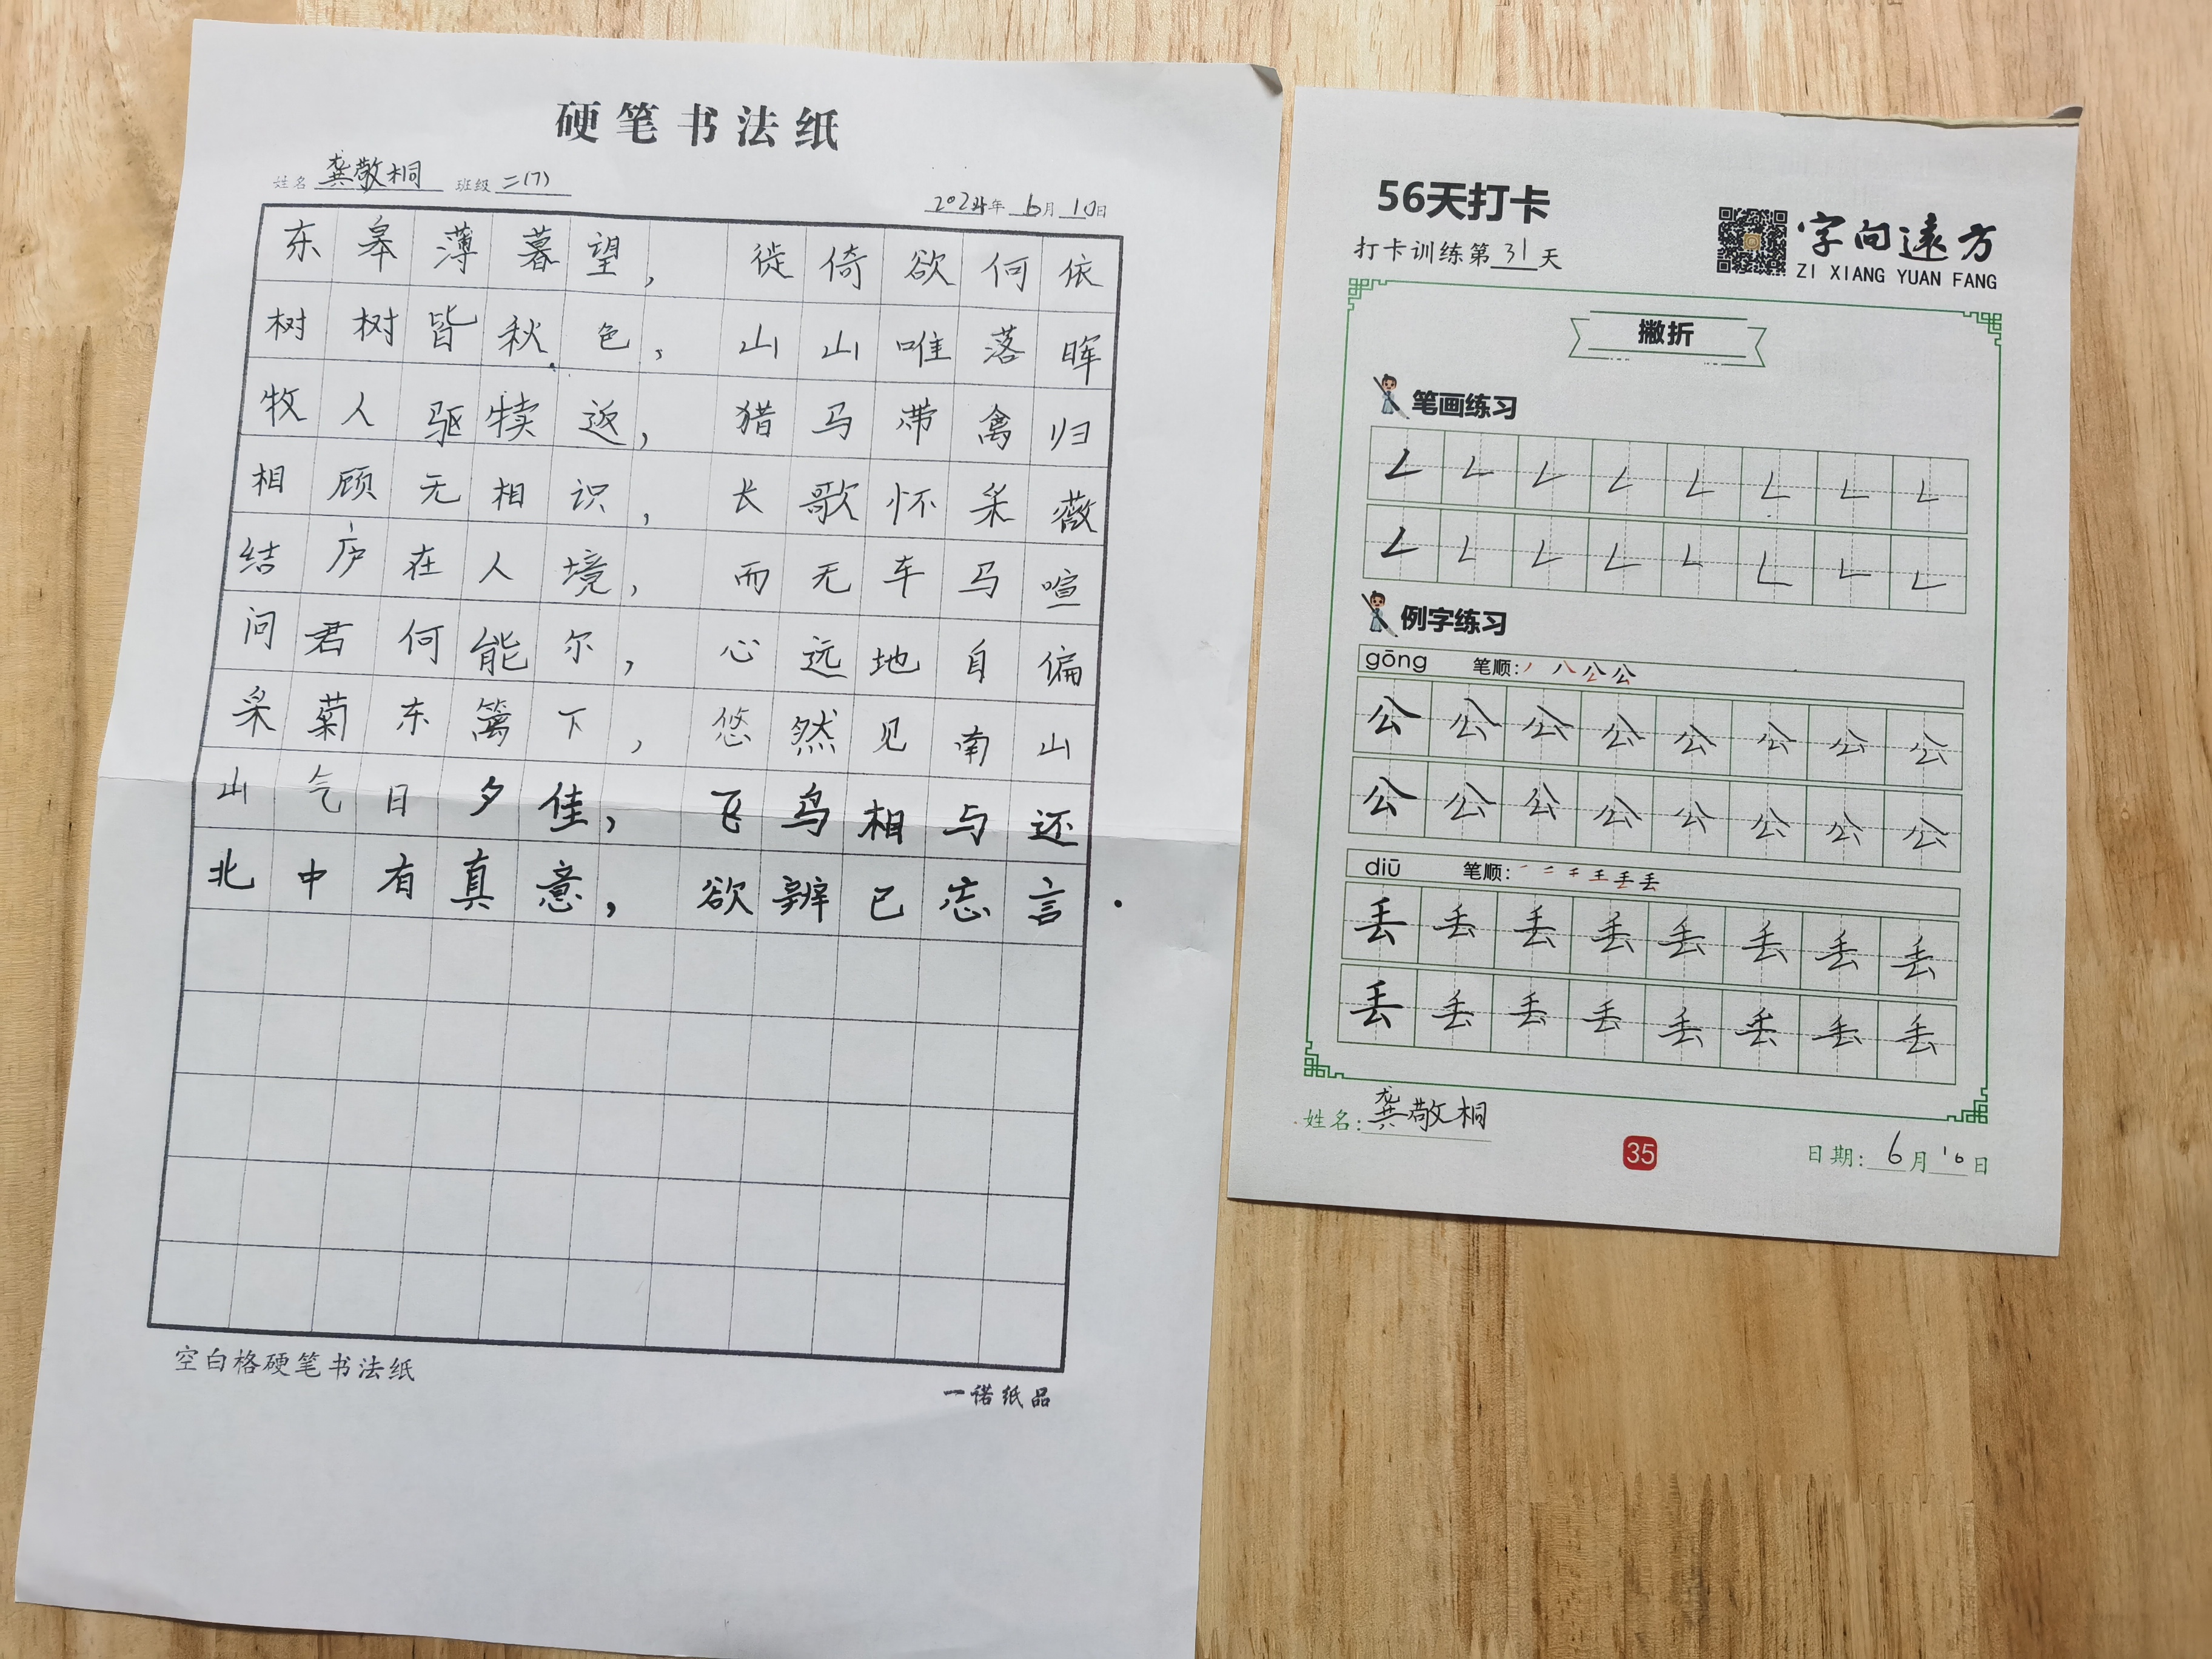 硬笔书法纸
姓名 龚敬桐 班级 二(7)
2024年 6月 10日
东皋薄暮望， 徙倚欲何依
树树皆秋色， 山山唯落晖
牧人驱犊返， 猎马带禽归
相顾无相识， 长歌怀采薇
结庐在人境， 而无车马喧
问君何能尔， 心远地自偏
采菊东篱下， 悠然见南山
山气日夕佳， 飞鸟相与还
北中有真意， 欲辨已忘言.
空白格硬笔书法纸
一诺纸品
56天打卡
打卡训练第31天
字向远方
ZI XIANG YUAN FANG
撇折
笔画练习
𠃋𠃋𠃋𠃋𠃋𠃋𠃋𠃋
𠃋𠃋𠃋𠃋𠃋𠃋𠃋𠃋
例字练习
gōng 笔顺: 丿 八 公 公
公公公公公公公公
公公公公公公公公
diū 笔顺: 一 二 千 王 丢 丢
丢丢丢丢丢丢丢丢
丢丢丢丢丢丢丢丢
姓名: 龚敬桐
35
日期: 6月10日